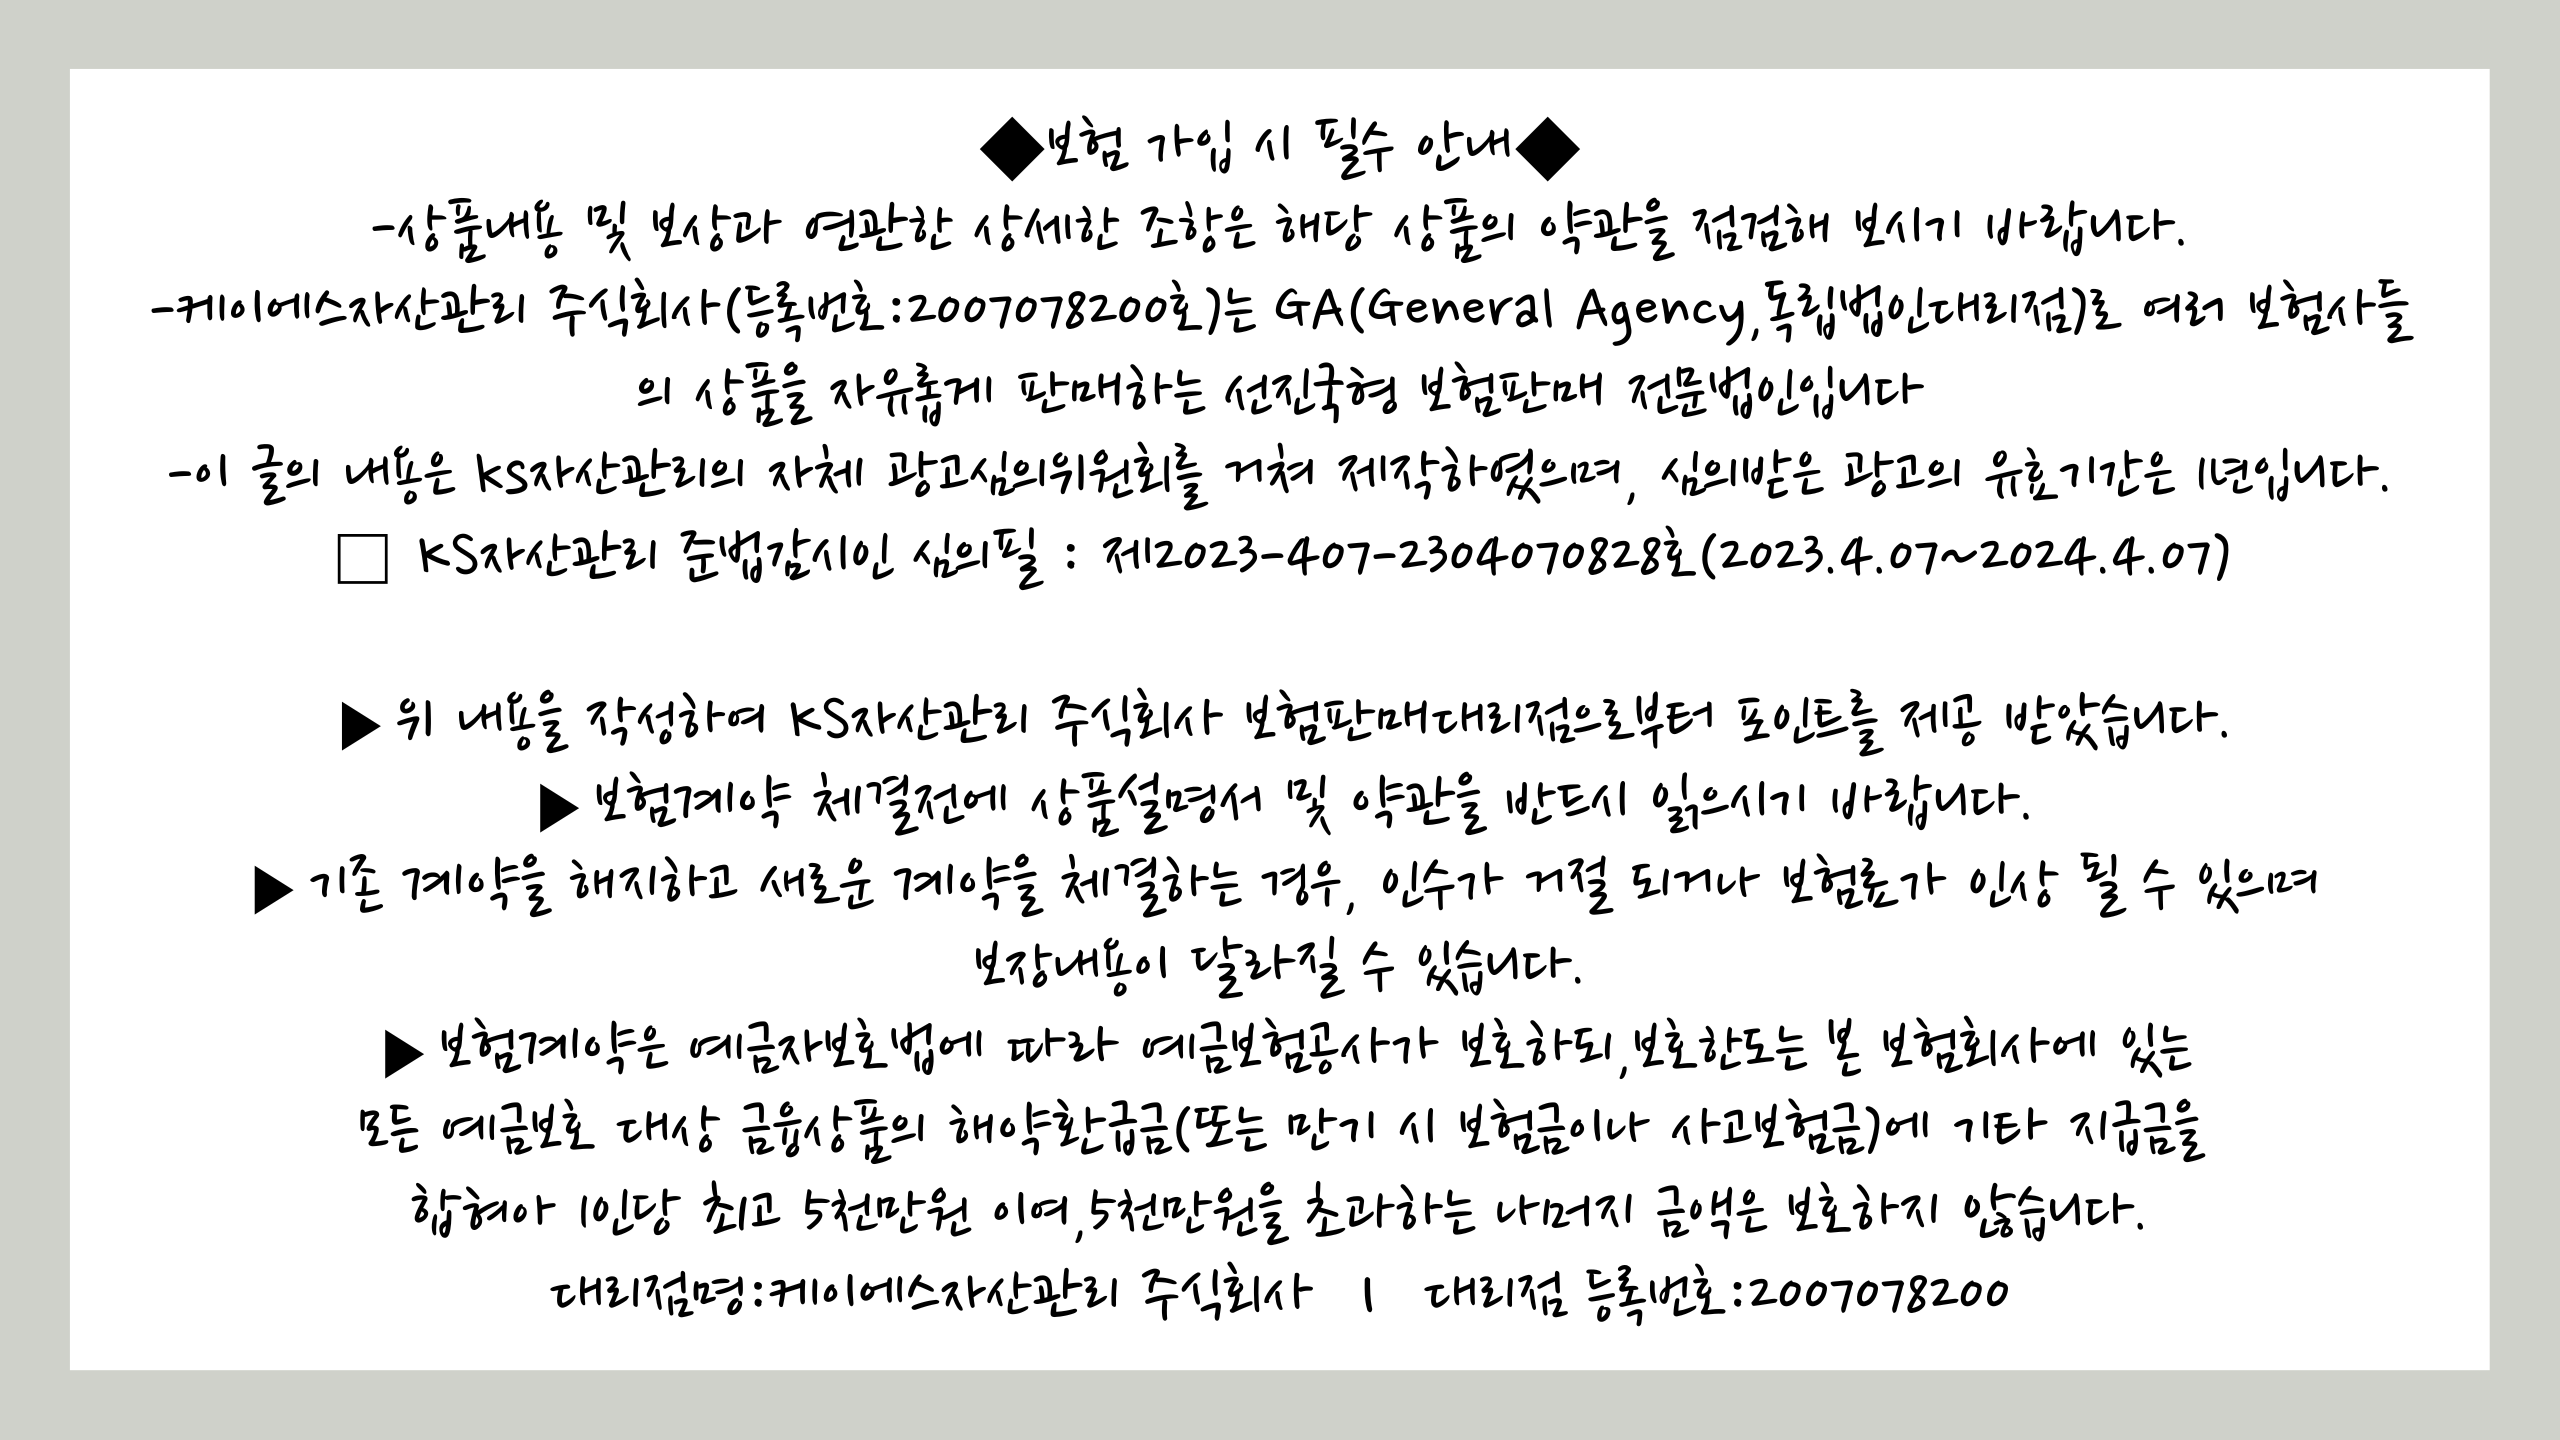 ◆보험 가입 시 필수 안내◆
-상품내용 및 보상과 연관한 상세한 조항은 해당 상품의 약관을 점검해 보시기 바랍니다.
-케이에스자산관리 주식회사(등록번호:2007078200호)는 GA(General Agency,독립법인대리점)로 여러 보험사들
의 상품을 자유롭게 판매하는 선진국형 보험판매 전문법인입니다
-이 글의 내용은 ks자산관리의 자체 광고심의위원회를 거쳐 제작하였으며, 심의받은 광고의 유효기간은 1년입니다.
□ KS자산관리 준법감시인 심의필 : 제2023-407-2304070828호(2023.4.07~2024.4.07)
▶위 내용을 작성하여 KS자산관리 주식회사 보험판매대리점으로부터 포인트를 제공 받았습니다.
▶보험계약 체결전에 상품설명서 및 약관을 반드시 읽으시기 바랍니다.
▶기존 계약을 해지하고 새로운 계약을 체결하는 경우, 인수가 거절 되거나 보험료가 인상 필 수 있으며
보장내용이 달라질 수 있습니다.
▶보험계약은 예금자보호법에 따라 예금보험공사가 보호하되,보호한도는 본 보험회사에 있는
모든 예금보호 대상 금융상품의 해약환급금(또는 만기 시 보험금이나 사고보험금)에 기타 지급금을
합혀아 1인당 최고 5천만원 이여,5천만원을 초과하는 나머지 금액은 보호하지 않습니다.
대리점명:케이에스자산관리 주식회사 | 대리점 등록번호:2007078200